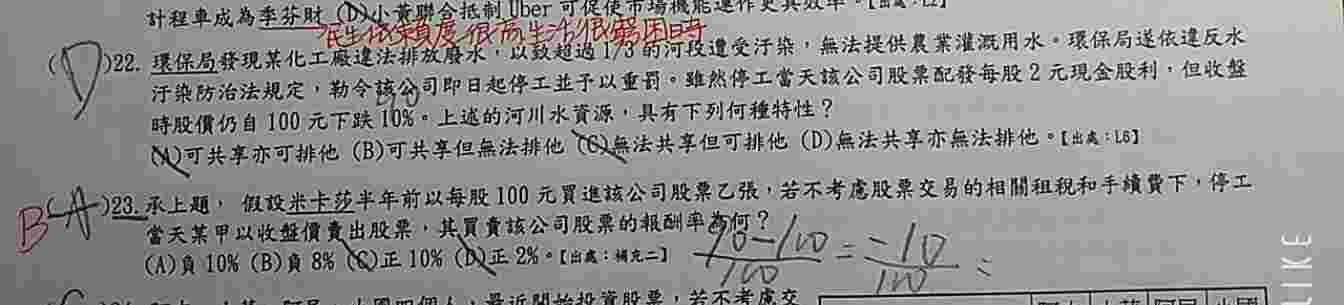 計程車成為季芬財 (D)小黃聯合抵制 Uber 可促使市場機能運作更具效率。【出處：L2】
民生依賴度很高生活很窮困時
(D)22. 環保局發現某化工廠違法排放廢水，以致超過 1/3 的河段遭受汙染，無法提供農業灌溉用水。環保局遂依違反水
汙染防治法規定，勒令該公司即日起停工並予以重罰。雖然停工當天該公司股票配發每股 2 元現金股利，但收盤
90
時股價仍自 100 元下跌 10%。上述的河川水資源，具有下列何種特性？
(A)可共享亦可排他 (B)可共享但無法排他 (C)無法共享但可排他 (D)無法共享亦無法排他。【出處：L6】
B(A)23. 承上題，假設米卡莎半年前以每股 100 元買進該公司股票乙張，若不考慮股票交易的相關租稅和手續費下，停工
當天某甲以收盤價賣出股票，其買賣該公司股票的報酬率為何？
(A)負 10% (B)負 8% (C)正 10% (D)正 2%。【出處：補充二】
90-100/100 = -10/100 =
LIKE